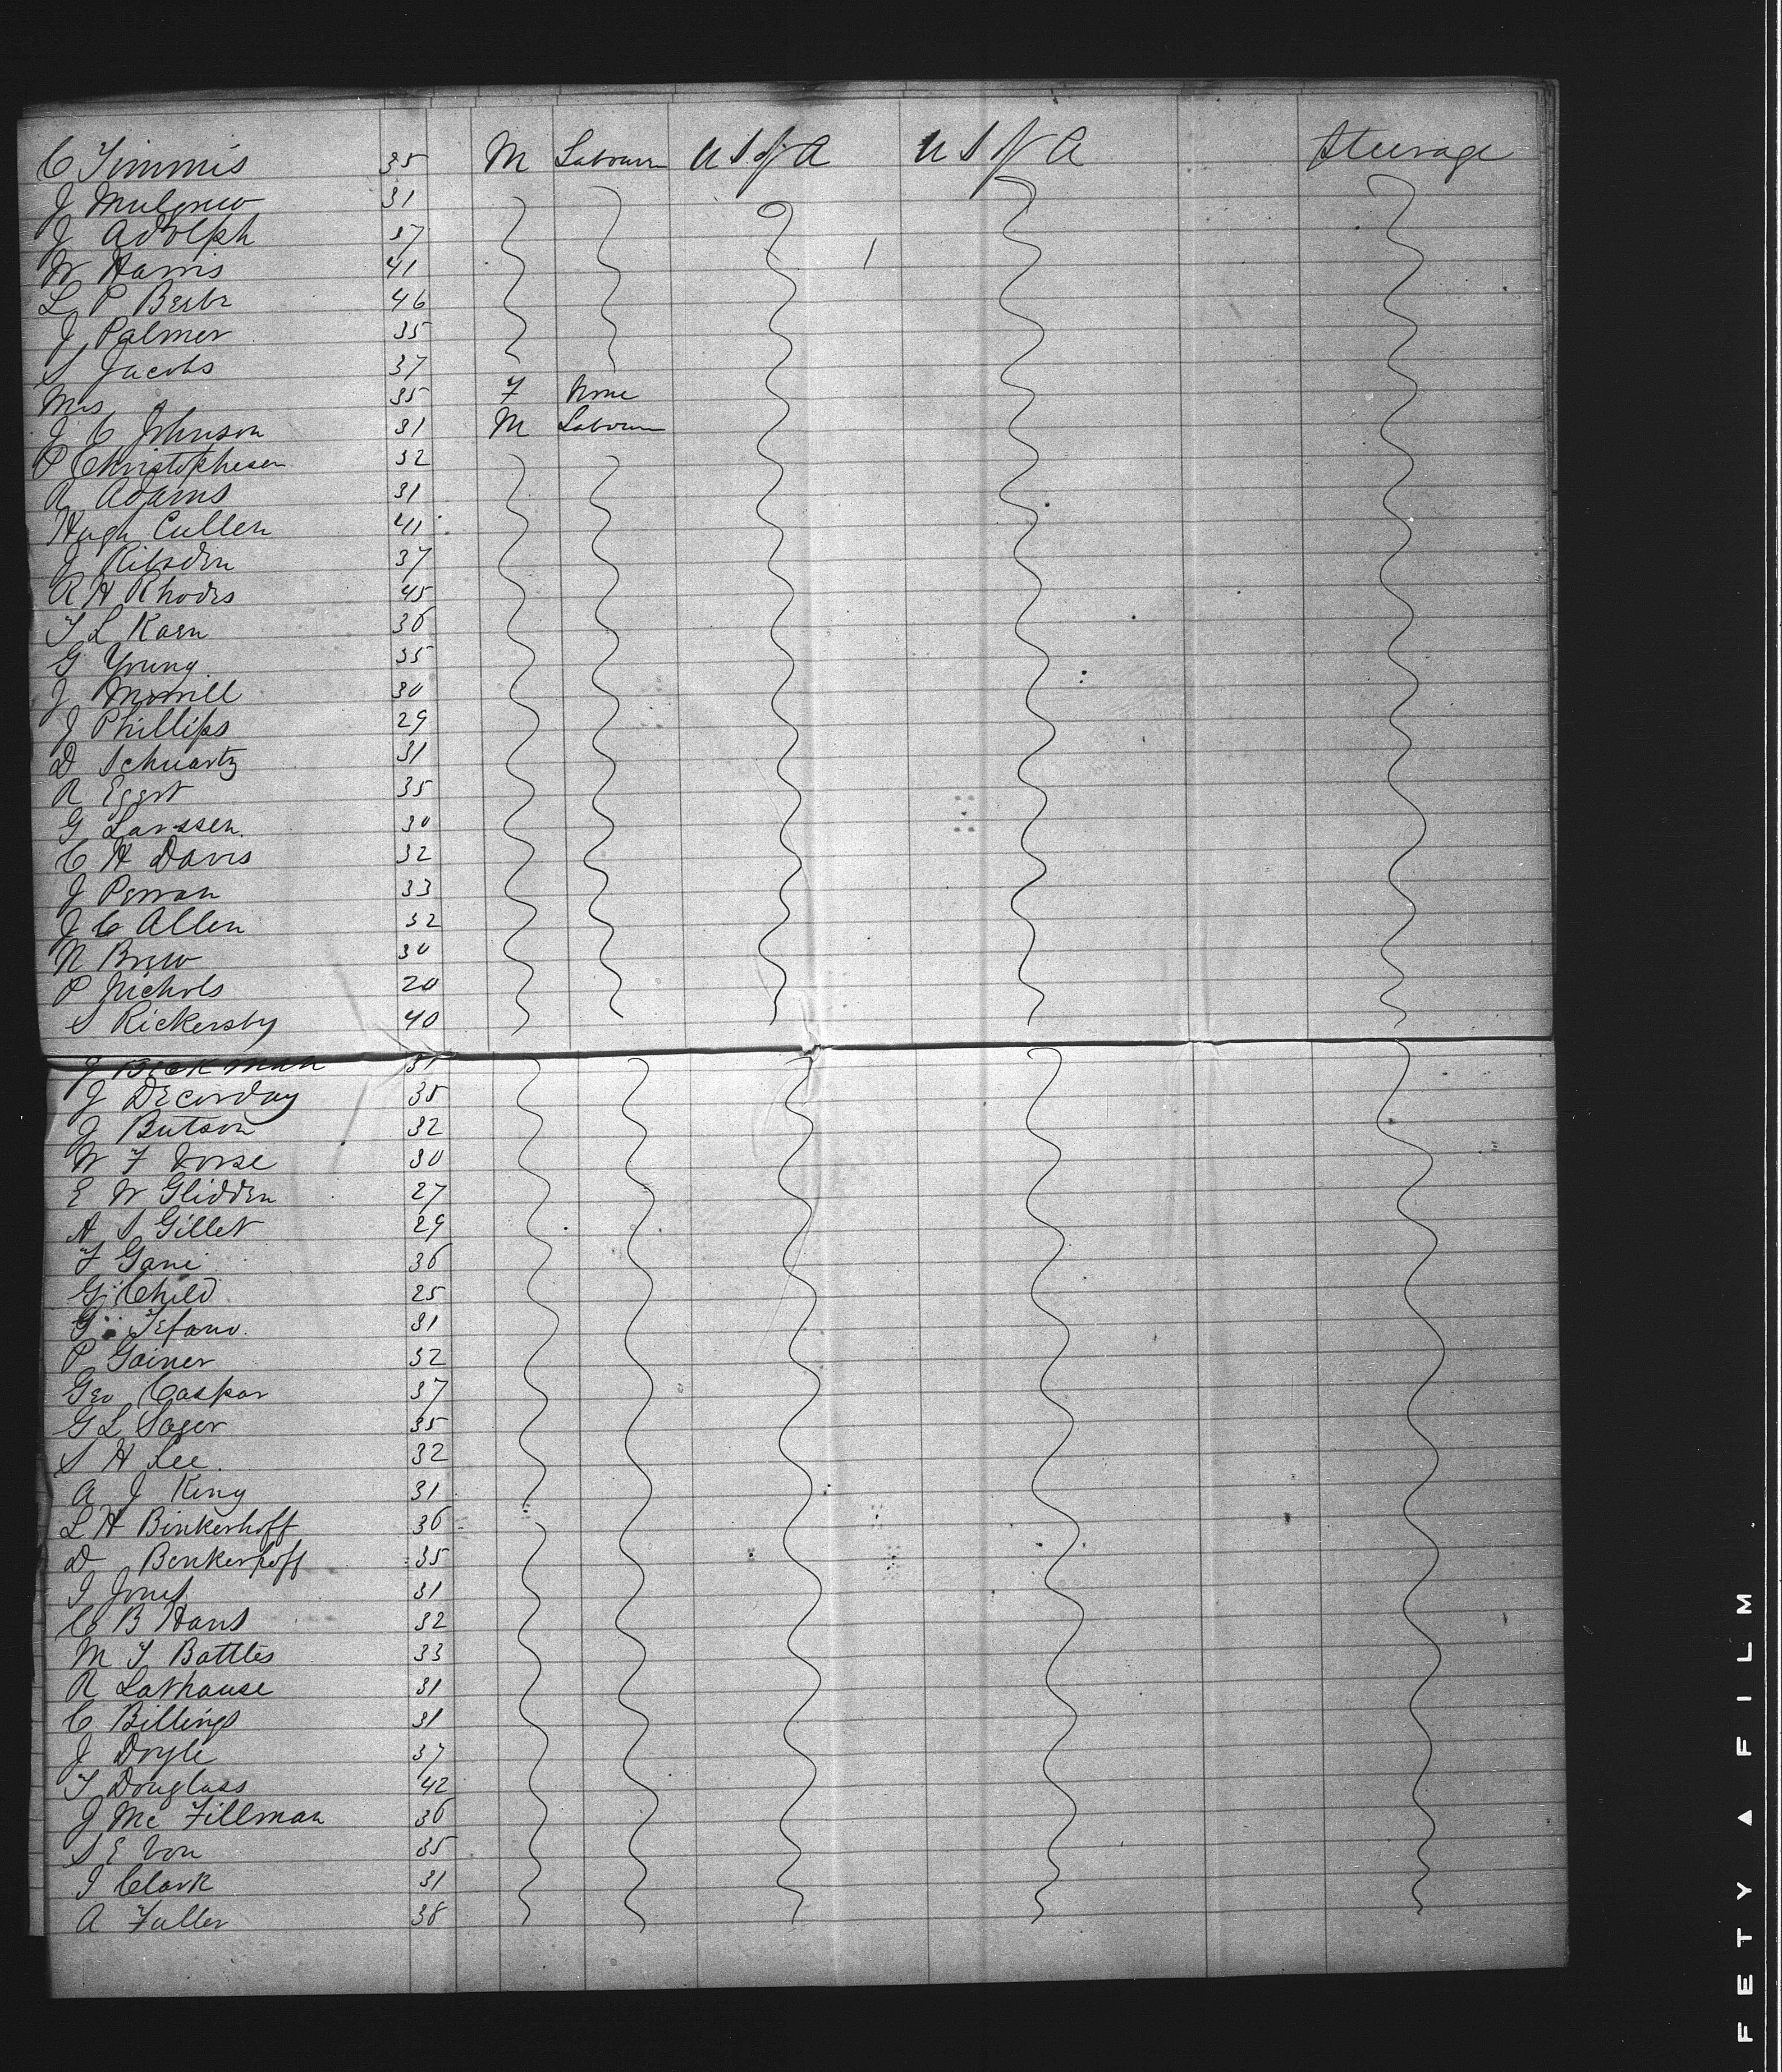 C Timmis 35 M Labourer U S of A U S of A Steerage
J Mulgrew 31
J Adolph 37
W Harris 41
L P Beebe 46
J Palmer 35
S Jacobs 37
Mrs 35 F None
J C Johnson 31 M Labourer
P Christophesen 32
R Adams 31
Hugh Cullen 41
J Ribsden 37
R H Rhodes 45
T L Kaen 36
G Young 35
J Morrill 30
J Phillips 29
D Schwartz 31
R Egert 35
G Larssen 30
C H Davis 32
J Perran 33
J C Allen 32
N Brew 30
P Nichols 20
S Rickersby 40
J Beekman 31
J Decorday 35
J Butson 32
W F Vorse 30
E W Glidden 27
A S Gillet 29
F Gani 36
G Child 25
G Tefano 31
P Gainer 32
Geo Caspar 37
G L Sager 35
S H Lee 32
A J King 31
L H Binkerhoff 36
D Benkerhoff 35
I Jones 31
C B Hans 32
M T Battles 33
R Lathause 31
C Billings 31
J Doyle 37
T Douglass 42
J Mc Fillman 36
S E Von 35
I Clark 31
A Fuller 38
FETY ▲ FILM